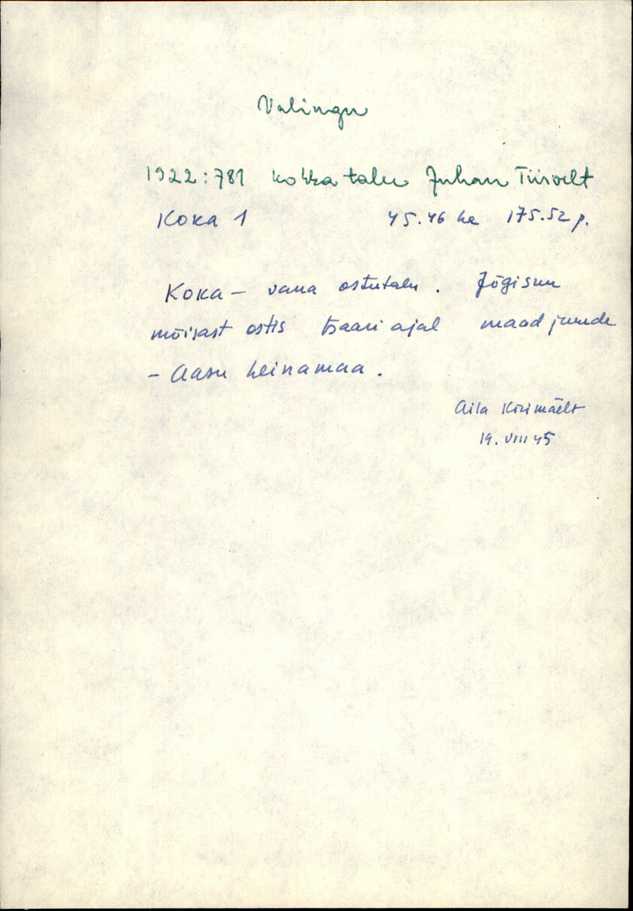 Valingu
1922:781 Kokka talu Juhan Tiisvelt
Koka 1 45.46 ha 175.52 p.
Koka – vana ostutalu. Jõgisuu
mõisast ostis tsaari ajal maad juurde
– Aasu heinamaa.
Aila Kirimäelt
19. VIII 45